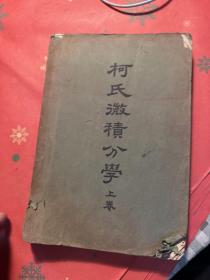 柯氏微積分學上卷